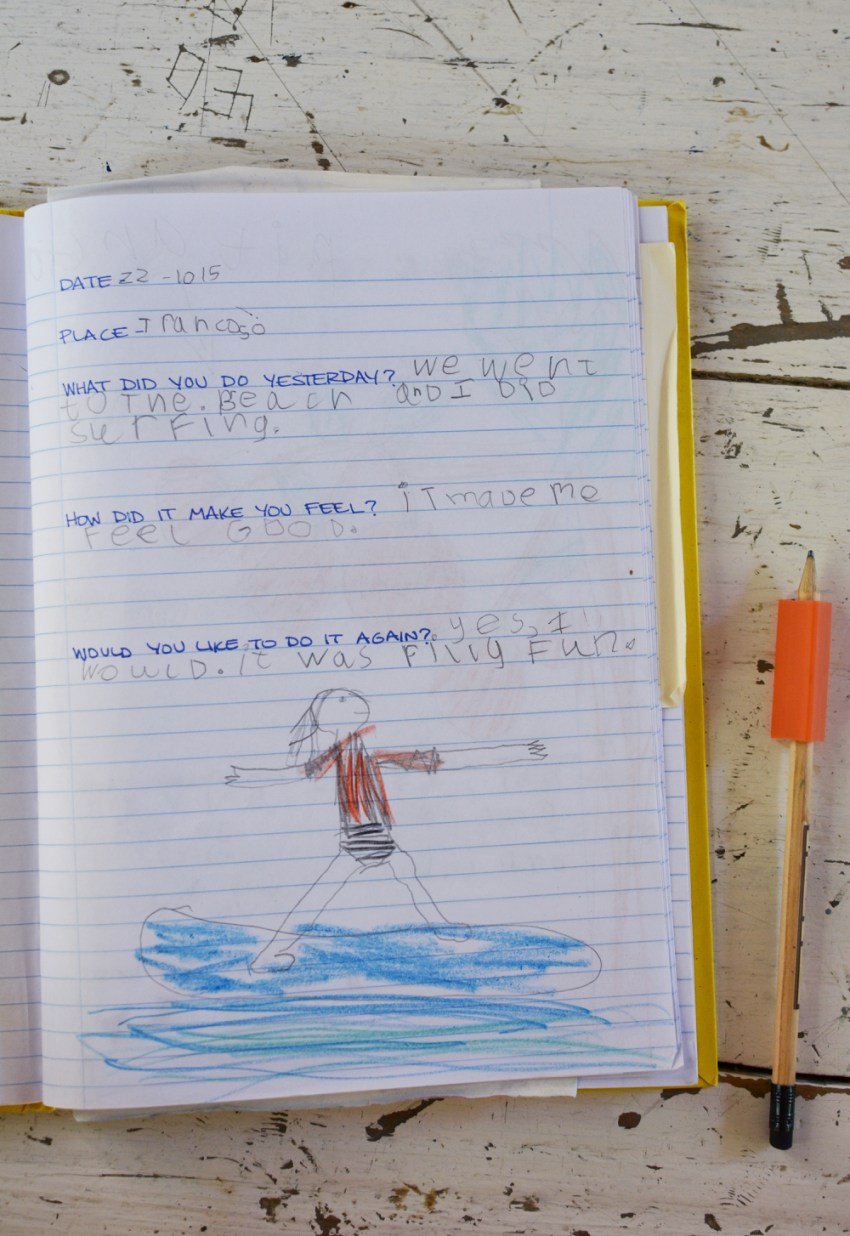 DATE 22 -1015
PLACE Trancoso
WHAT DID YOU DO YESTERDAY? we went
to The. Beach anD I DiD
surfing.
HOW DID IT MAKE YOU FEEL? iT maDe me
FeeL GOOD.
WOULD YOU LIKE TO DO IT AGAIN? yes, I
WOULD. it was Fun.
93